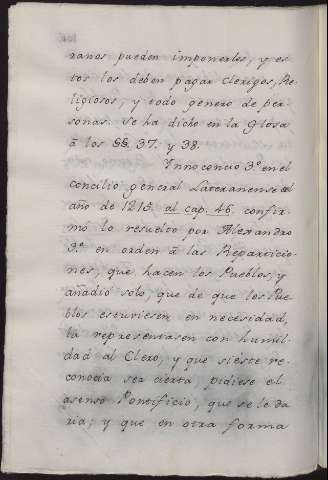 ranos pueden imponerles, y es
tos los deben pagar clerigos, Re
ligiosos, y todo genero de per
sonas. Se ha dicho en la Glosa
â los §§. 37. y 38.
Innocencio 3.º en el
concilio general Lateranense del
año de 1215. al cap. 46. confir
mó lo resuelto por Alexandro
3.º en orden â las Reparticio
nes, que hacen los Pueblos; y
añadio solo, que de que los Pue
blos estuviesen en necesidad,
la representasen con humil
dad al Clero, y que si este re
conocia ser cierta, pidiese el
asenso Pontificio, que se le da
ria; y que en otra forma